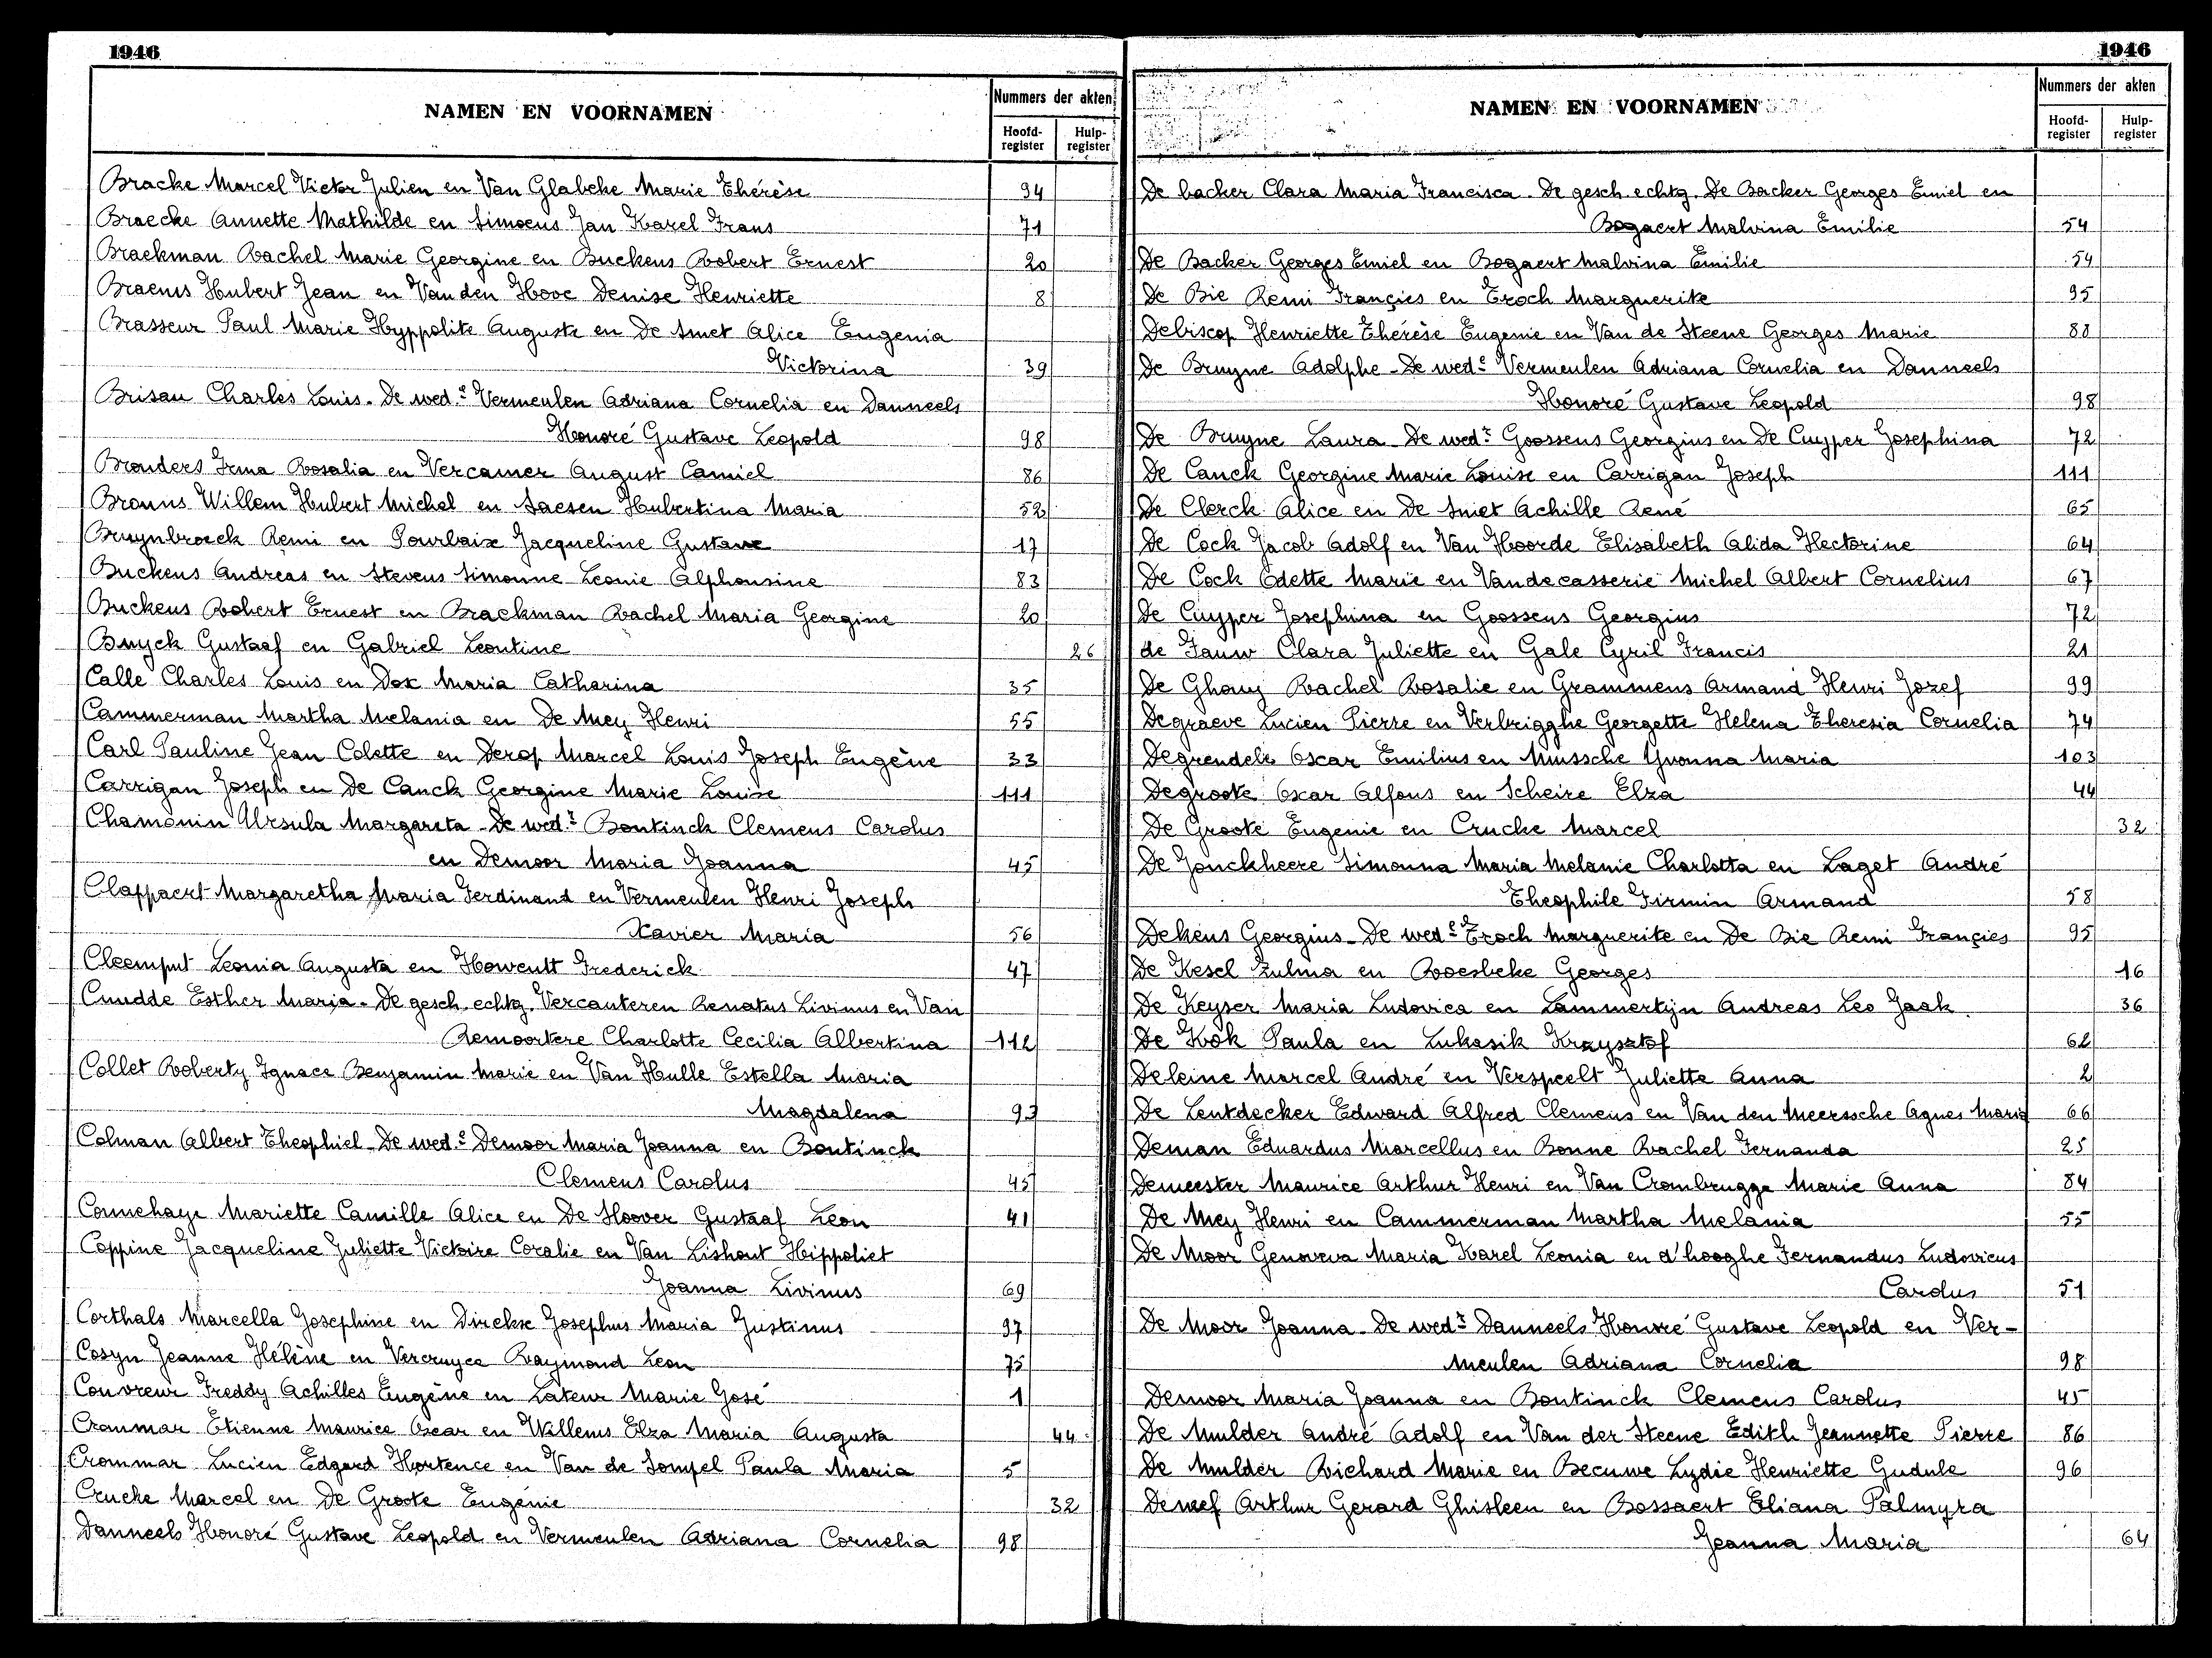 1946
NAMEN EN VOORNAMEN
Nummers der akten
Hoofd-register
Hulp-register
Bracke Marcel Victor Julien en Van Glabeke Marie Thérèse 94
Braecke Annette Mathilde en Simoens Jan Karel Frans 71
Braekman Rachel Marie Georgine en Buckens Robert Ernest 20
Braems Hubert Jean en Van den Hove Denise Henriette 8
Brasseur Paul Marie Hyppolite Auguste en De Smet Alice Eugenia
Victorina 39
Brisau Charles Louis - De wede Vermeulen Adriana Cornelia en Danneels
Honoré Gustave Leopold 98
Brouders Irma Rosalia en Vercamer August Camiel 86
Brouns Willem Hubert Michel en Saesen Hubertina Maria 52
Bruynbroeck Remi en Pourbaix Jacqueline Gustave 17
Buckens Andreas en Stevens Simonne Leonie Alphonsine 83
Buckens Robert Ernest en Brackman Rachel Maria Georgine 20
Buyck Gustaaf en Gabriel Leontine 26
Calle Charles Louis en Dox Maria Catharina 35
Cammerman Martha Melania en De Mey Henri 55
Carl Pauline Jean Colette en Derop Marcel Louis Joseph Eugène 33
Carrigan Joseph en De Canck Georgine Marie Louise 111
Chamonin Ursula Margareta - De wede Bontinck Clemens Carolus
en Demoor Maria Joanna 45
Clappaert Margaretha Maria Ferdinand en Vermeulen Henri Joseph
Xavier Maria 56
Cleemput Leonia Augusta en Howcutt Frederick 47
Cnudde Esther Maria - De gesch. echtg. Vercauteren Renatus Livinus en Van
Remoortere Charlotte Cecilia Albertina 112
Collet Roberty Ignace Benjamin Marie en Van Hulle Estella Maria
Magdalena 93
Colman Albert Theophiel - De wede Demoor Maria Joanna en Bontinck
Clemens Carolus 45
Connehaye Mariette Camille Alice en De Hoover Gustaaf Leon 41
Coppine Jacqueline Juliette Victoire Coralie en Van Lishout Hippoliet
Joanna Livinus 69
Corthals Marcella Josephine en Dirckse Josephus Maria Justinus 97
Cosyn Jeanne Hélène en Vercruyce Raymond Leon 75
Couvreur Freddy Achilles Eugène en Lateur Marie José 1
Crommar Etienne Maurice Oscar en Willems Elza Maria Augusta 44
Crommar Lucien Edgard Hortence en Van de Sompel Paula Maria 5
Crucke Marcel en De Groote Eugénie 32
Danneels Honoré Gustave Leopold en Vermeulen Adriana Cornelia 98
1946
NAMEN EN VOORNAMEN
Nummers der akten
Hoofd-register
Hulp-register
De backer Clara Maria Francisca - De gesch. echtg. De Backer Georges Emiel en
Bogaert Malvina Emilie 54
De Backer Georges Emiel en Bogaert Malvina Emilie 54
De Bie Remi Françies en Troch Marguerite 95
Debiscop Henriette Thérèse Eugenie en Van de Steene Georges Marie 88
De Bruyne Adolphe - De wede Vermeulen Adriana Cornelia en Danneels
Honoré Gustave Leopold 98
De Bruyne Laura - De wedr Goossens Georgius en De Cuyper Josephina 72
De Canck Georgine Marie Louise en Carrigan Joseph 111
De Clerck Alice en De Smet Achille René 65
De Cock Jacob Adolf en Van Hoorde Elisabeth Alida Hectorine 64
De Cock Odette Marie en Vandecasserie Michel Albert Cornelius 67
De Cuyper Josephina en Goossens Georgius 72
de Fauw Clara Juliette en Gale Cyril Francis 21
De Ghouy Rachel Rosalie en Grammens Armand Henri Jozef 99
Degraeve Lucien Pierre en Verbrigghe Georgette Helena Theresia Cornelia 74
Degrendele Oscar Emilius en Mussche Yvonna Maria 103
Degroote Oscar Alfons en Scheire Elza 44
De Groote Eugenie en Crucke Marcel 32
De Jonckheere Simonna Maria Melanie Charlotta en Laget André
Theophile Firmin Armand 58
Dekens Georgius - De wede Troch Marguerite en De Bie Remi Françies 95
De Kesel Zulma en Roesbeke Georges 16
De Keyser Maria Ludovica en Lammertijn Andreas Leo Jaak 36
De Kok Paula en Lukasik Krzysztof 62
Deleine Marcel André en Verspeelt Juliette Anna 2
De Lentdecker Edward Alfred Clemens en Van den Meerssche Agnes Maria 66
Deman Eduardus Marcellus en Bonne Rachel Fernanda 25
Demeester Maurice Arthur Henri en Van Crombrugge Marie Anna 84
De Mey Henri en Cammerman Martha Melania 55
De Moor Genoveva Maria Karel Leonia en d'hooghe Fernandus Ludovicus
Carolus 51
De Moor Joanna - De wedr Danneels Honoré Gustave Leopold en Ver-
meulen Adriana Cornelia 98
Demoor Maria Joanna en Bontinck Clemens Carolus 45
De Mulder André Adolf en Van der Steene Edith Jeannette Pierre 86
De Mulder Richard Marie en Becuwe Lydie Henriette Gudule 96
Deneef Arthur Gerard Ghisleen en Bossaert Eliana Palmyra
Jeanna Maria 64